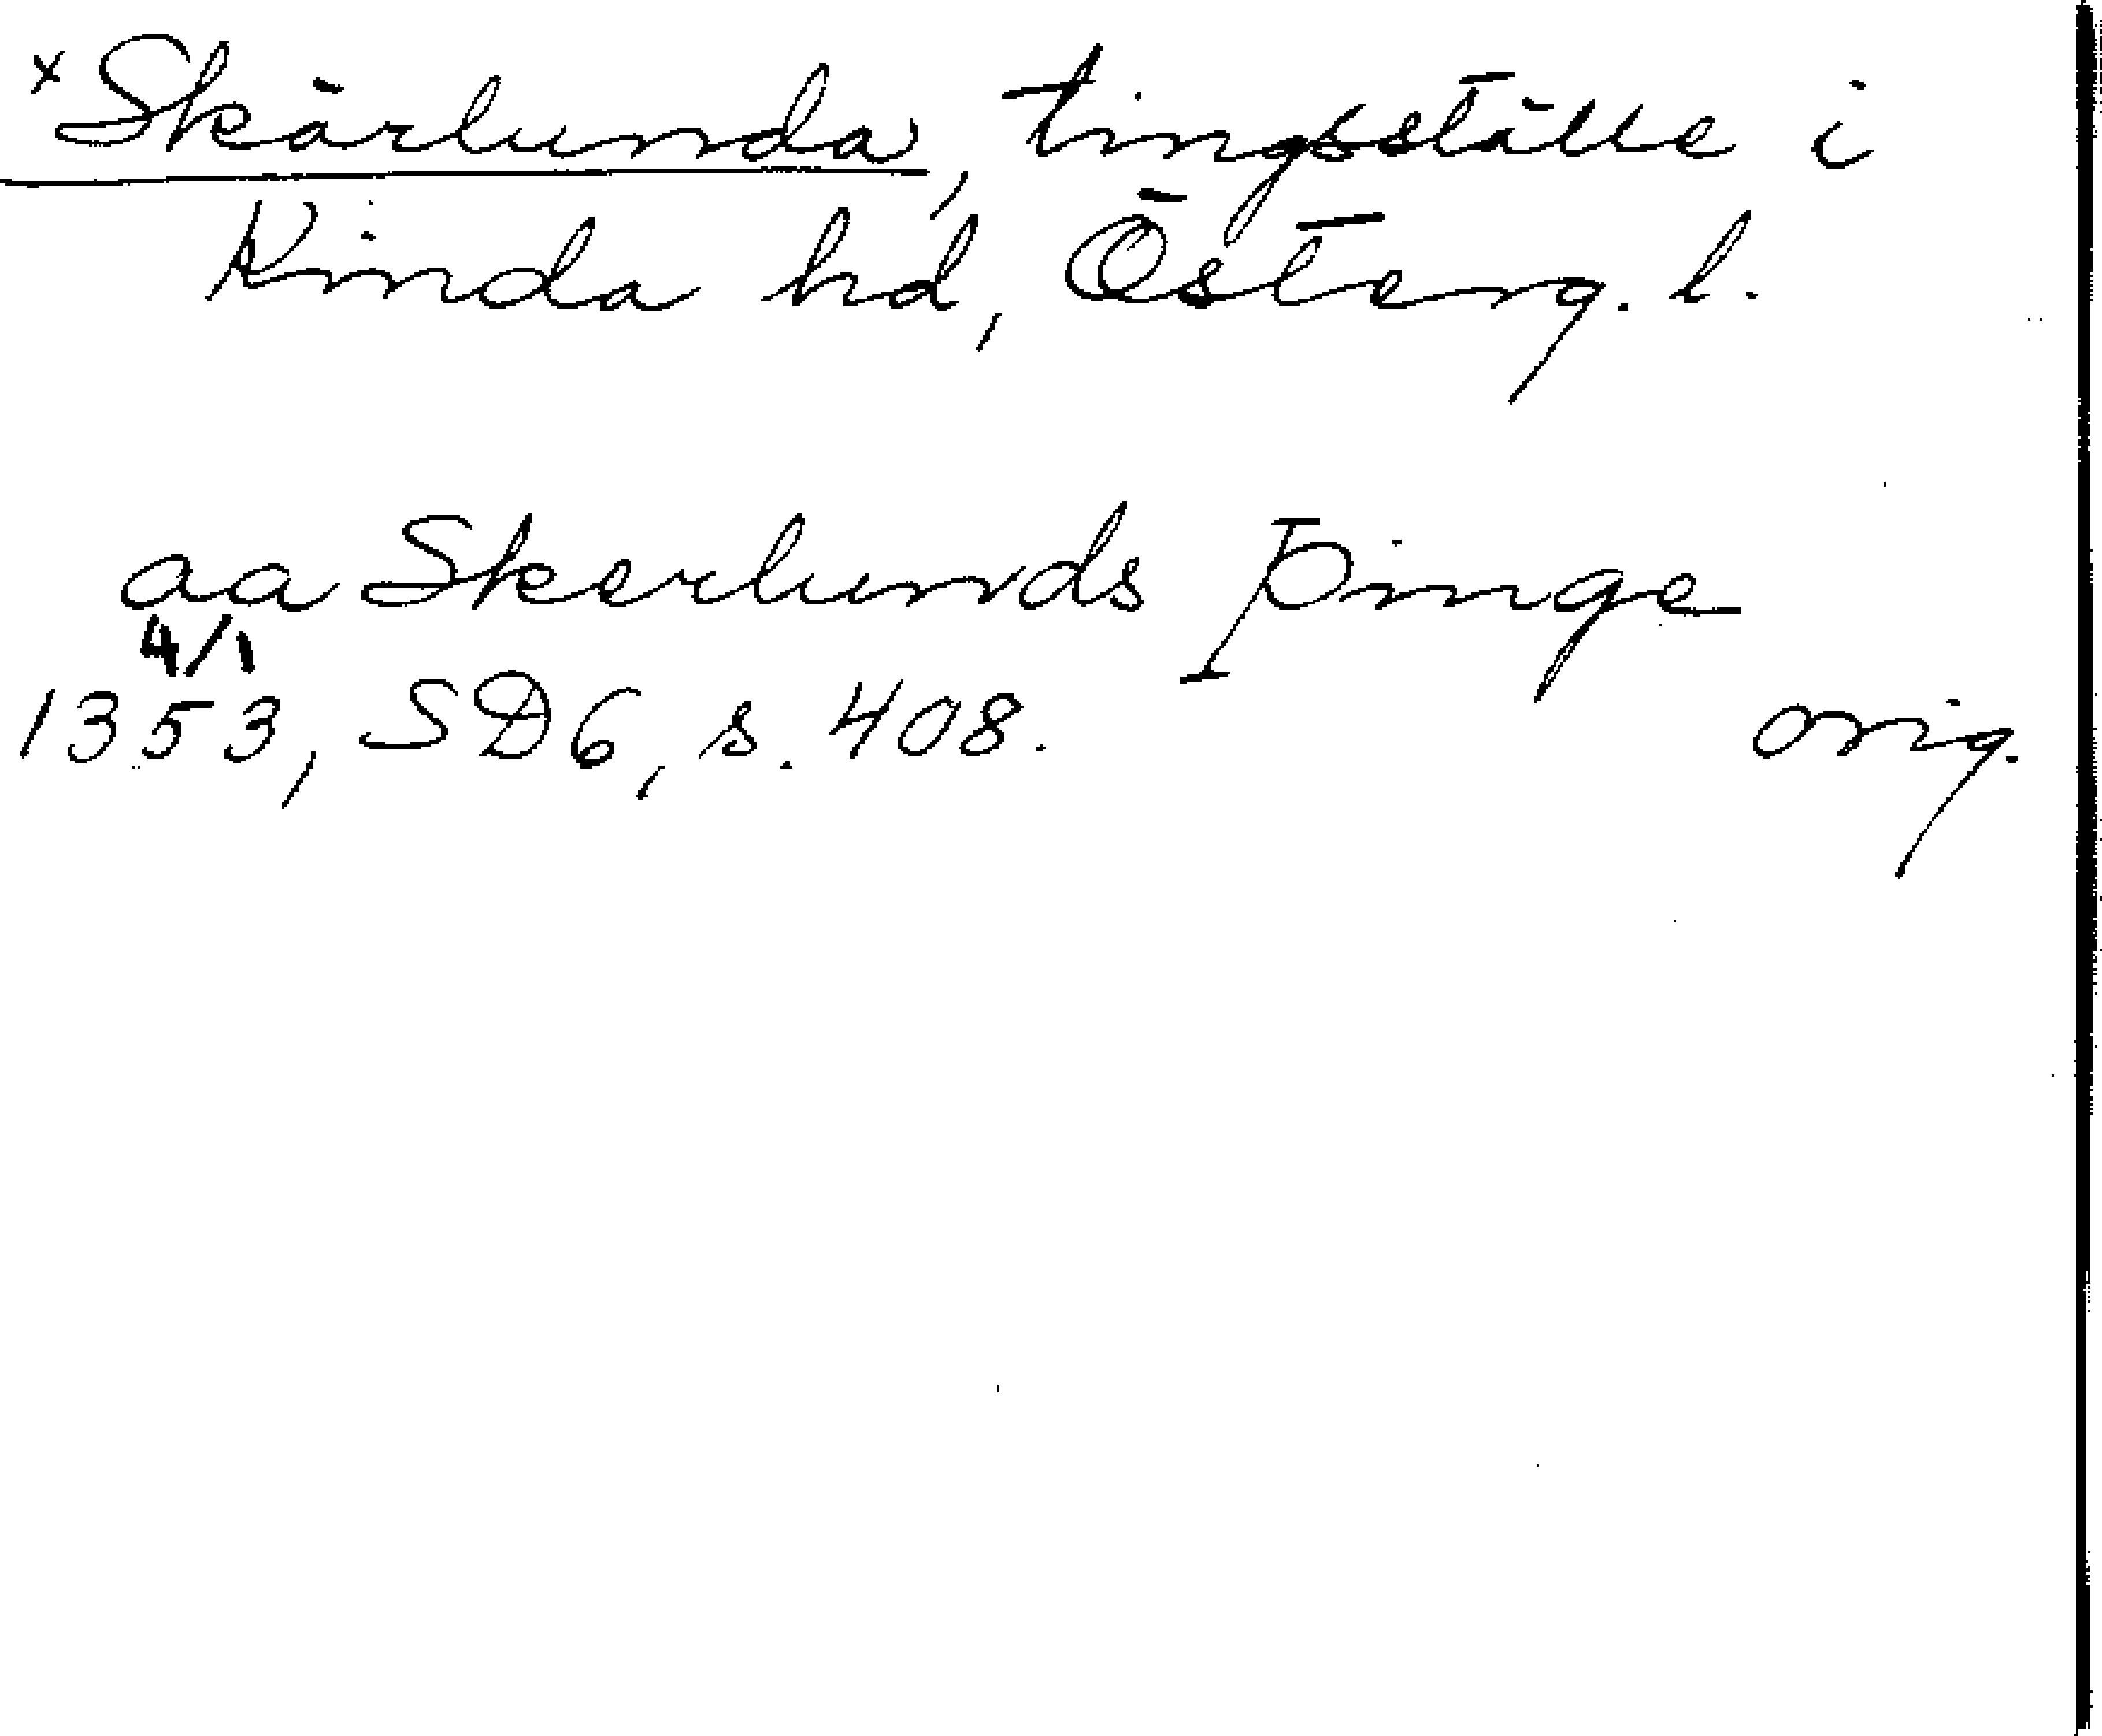 x Skärlunda, tingsställe i
Kinda hd, Österg. l.
aa Skerlunds þinge
4/1
1353, SD6, s. 408. orig.